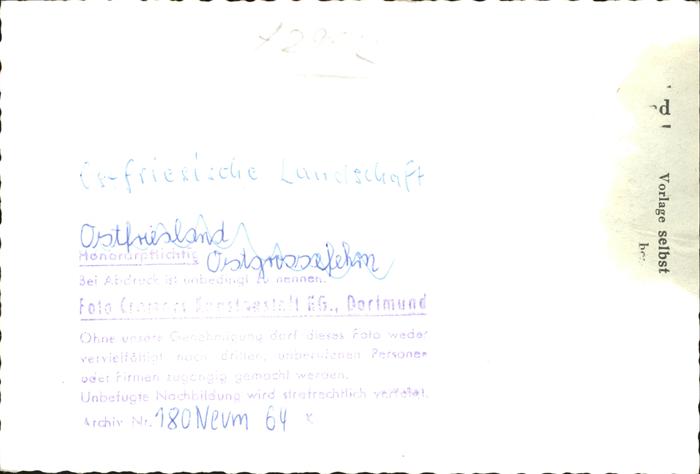 Ostfriesische Landschaft
Ostfriesland
Honorarpflichtig Ostgrossefehn
Bei Abdruck ist unbedingt zu nennen:
Foto Cramers Kunstanstalt KG., Dortmund
Ohne unsere Genehmigung darf dieses Foto weder
vervielfältigt noch dritten, unberufenen Personen
oder Firmen zugängig gemacht werden.
Unbefugte Nachbildung wird strafrechtlich verfolgt.
Archiv Nr. 180 Neum 64 x
Vorlage selbst